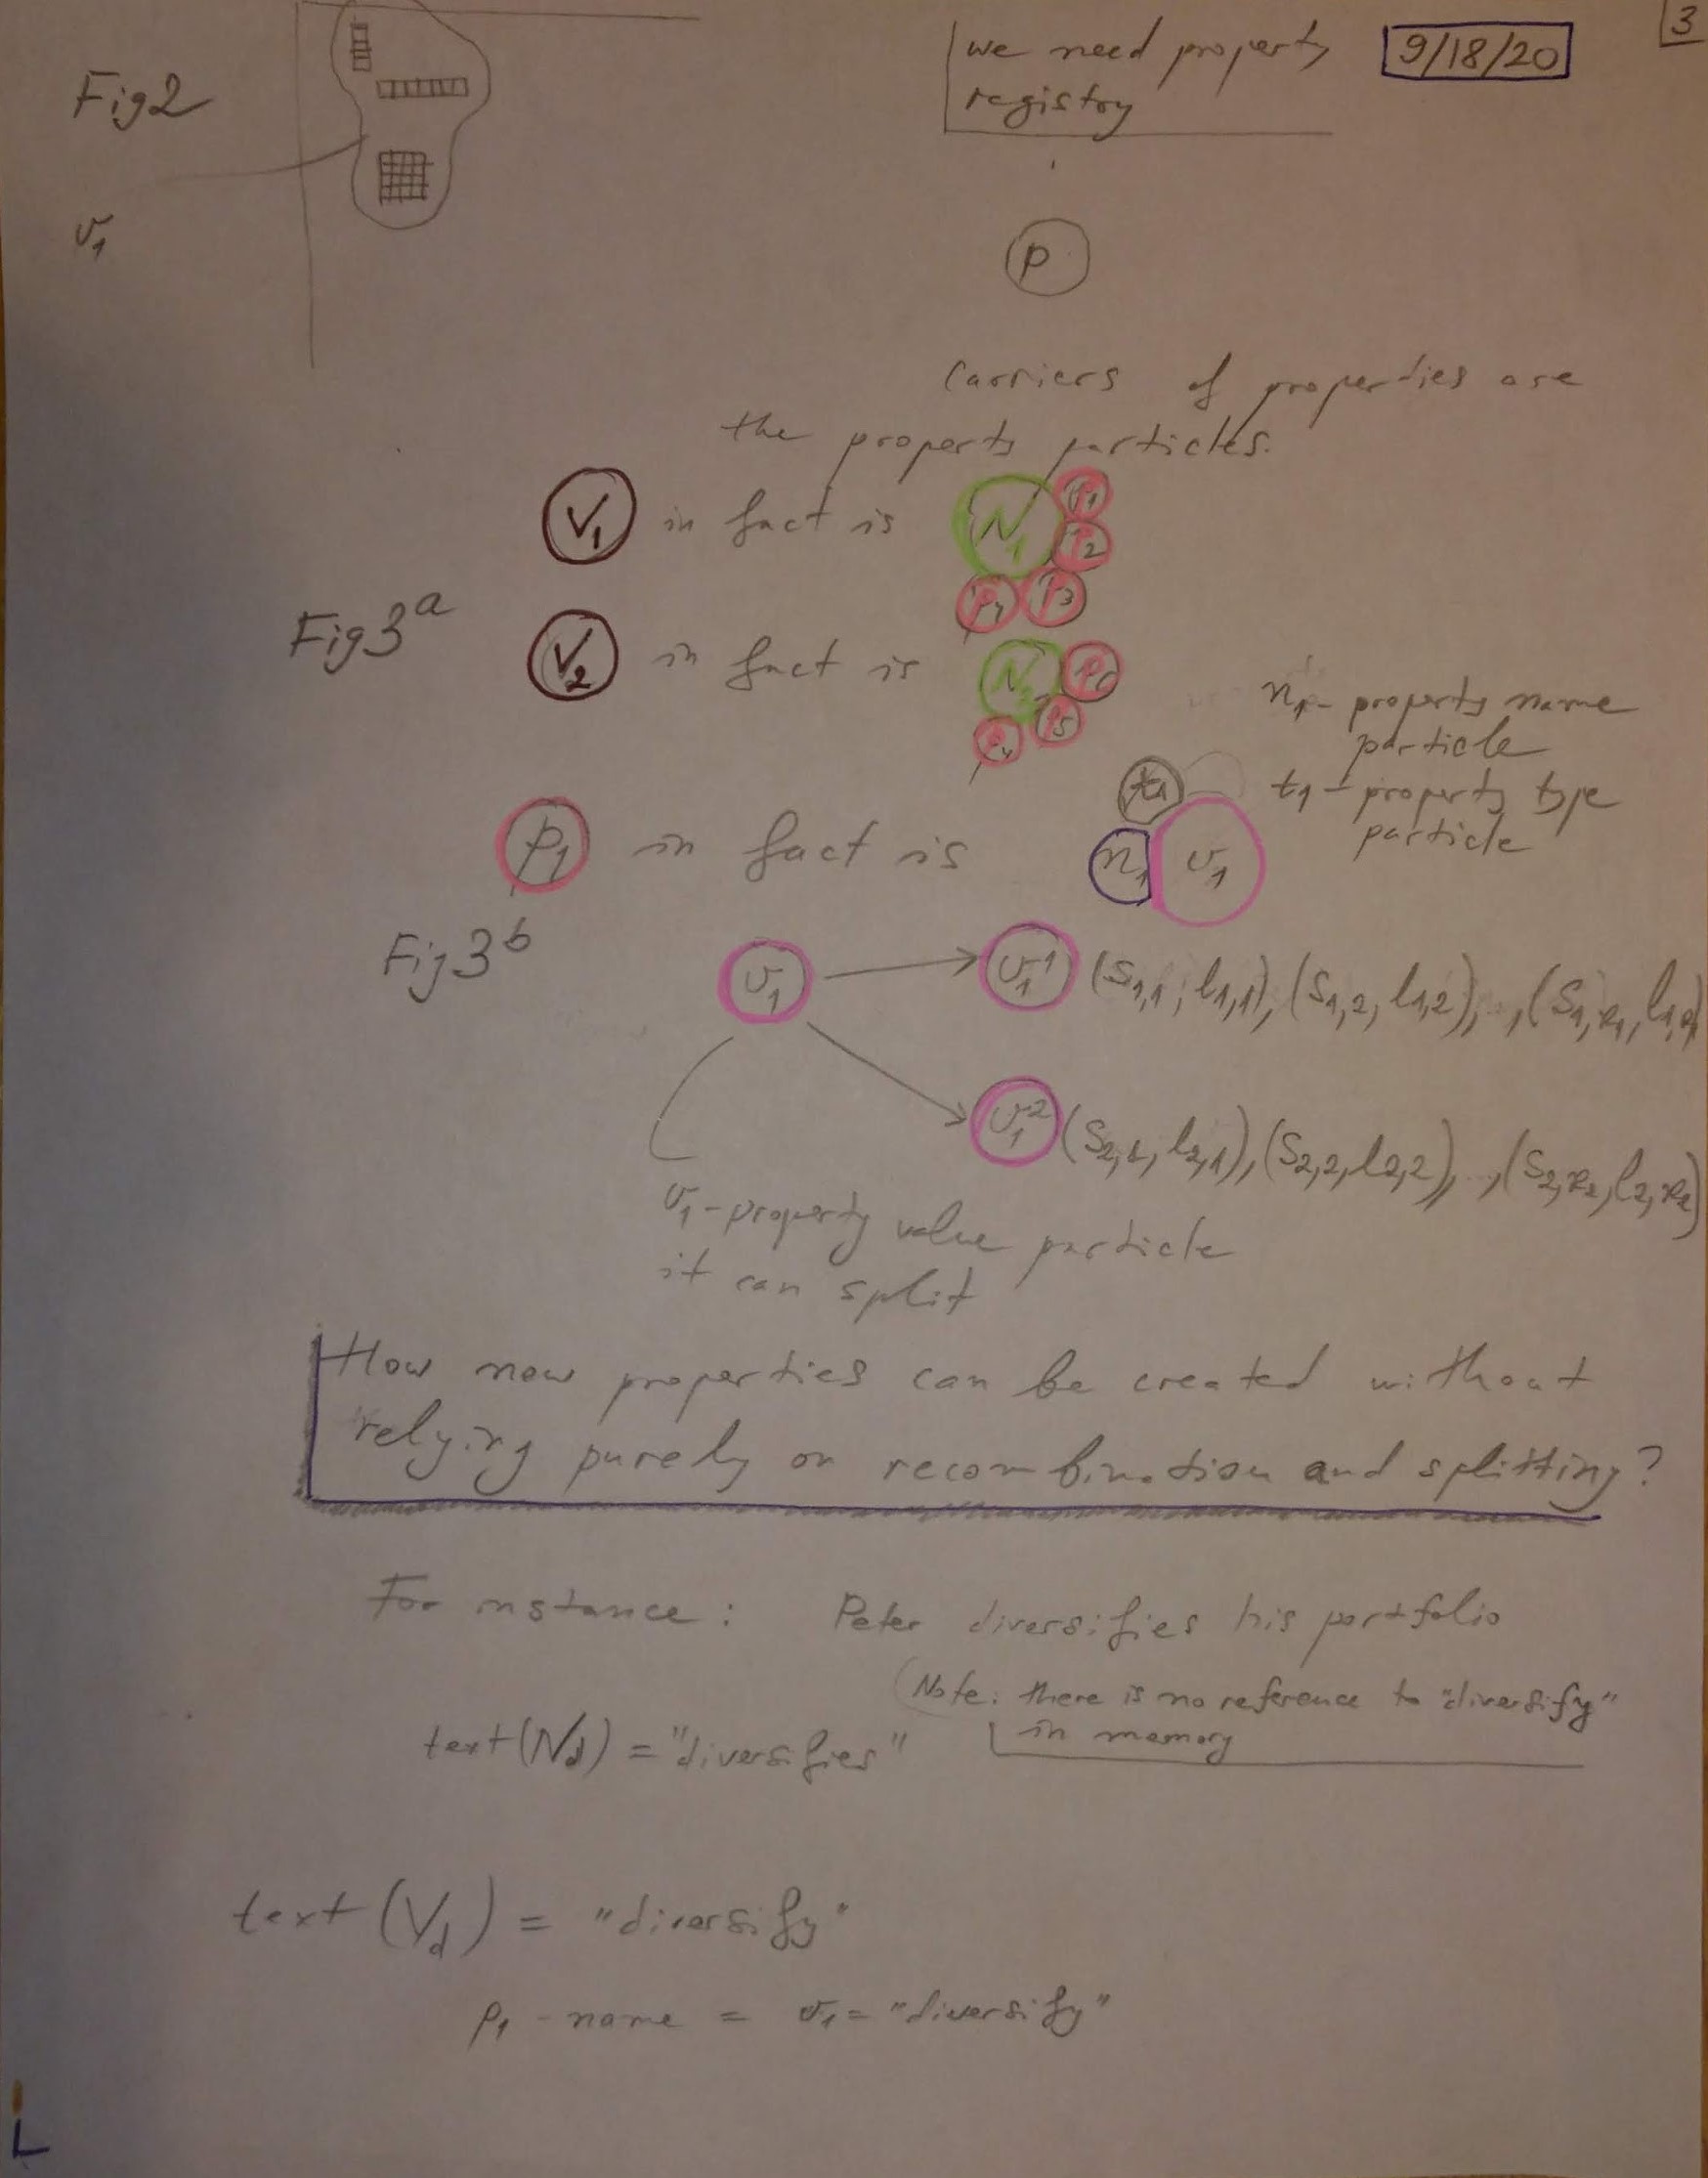 3
we need property
9/18/20
registry
Fig2
v1
p
Carriers of properties are
the property particles.
V1 in fact is N1 p1 p2 p3 p4
Fig3a
V2 in fact is N2 p6 p5 p4
n1 - property name
particle
t1 - property type
particle
p1 in fact is t1 n1 v1
Fig3b
v1 v1^1 (S1,1, l1,1), (S1,2, l1,2), .., (S1,
v1^2 (S2,1, l2,1), (S2,2, l2,2), .., (S2,
v1 - property value particle
it can split
How new properties can be created without
relying purely on recombination and splitting?
For instance: Peter diversifies his portfolio
Note: there is no reference to "diversify"
in memory
text(Nd) = "diversifies"
text(Vd) = "diversify"
p1 - name = v1 = "diversify"
L